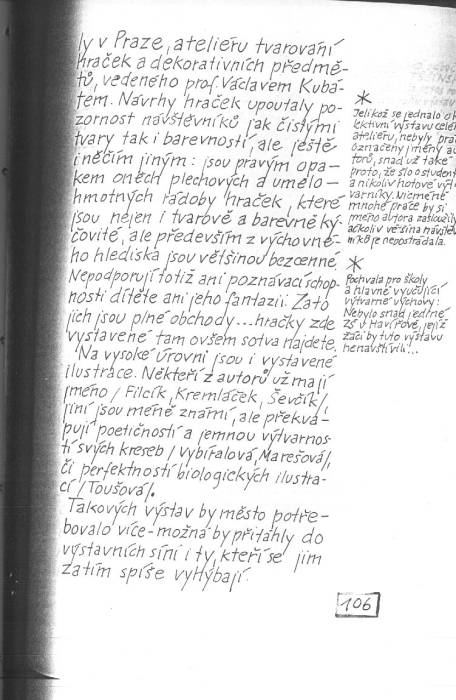 ly v Praze, atelieru tvarovaní
hraček a dekorativních předmě-
tů, vedeného prof. Václavem Kubá-
tem. Návrhy hraček upoutaly po-
zornost návštěvníků jak čistými
tvary tak i barevností, ale ještě
i něčím jiným: jsou pravým opa-
kem oněch plechových a umělo-
hmotných rádoby hraček, které
jsou nejen i tvarově a barevně ký-
čovité, ale především z výchovné-
ho hlediska jsou většinou bezcenné.
Nepodporují totiž ani poznávací schop-
nosti dítěte ani jeho fantazii. Zato
jich jsou plné obchody... hračky zde
vystavené tam ovšem sotva najdete.
Na vysoké úrovni jsou i vystavené
ilustrace. Někteří z autorů už mají
jméno / Filcík, Kremláček, Ševčík /,
jiní jsou méně známí, ale překva-
pují poetičností a jemnou výtvarnos-
tí svých kreseb / Vybíralová, Marešová /,
či perfektností biologických ilustra-
cí / Toušová /.
Takových výstav by město potře-
bovalo více - možná by přitáhly do
výstavních síní i ty, kteří se jim
zatím spíše vyhýbají.
*
Jelikož se jednalo o k
lektivní výstavu celé
atelieru, nebyly prá
označeny jmény au
torů, snad už také
proto, že šlo o student
a nikoliv hotové výt
varníky. Nicméně
mnohé práce by si
jméno autora zasloužily
ačkoliv většina návštěv
níků je nepostrádala.
*
Pochvala pro školy
a hlavně vyučující
výtvarné výchovy:
Nebylo snad jediné
ZŠ v Havířově, jejíž
žáci by tuto výstavu
nenavštívili...
106